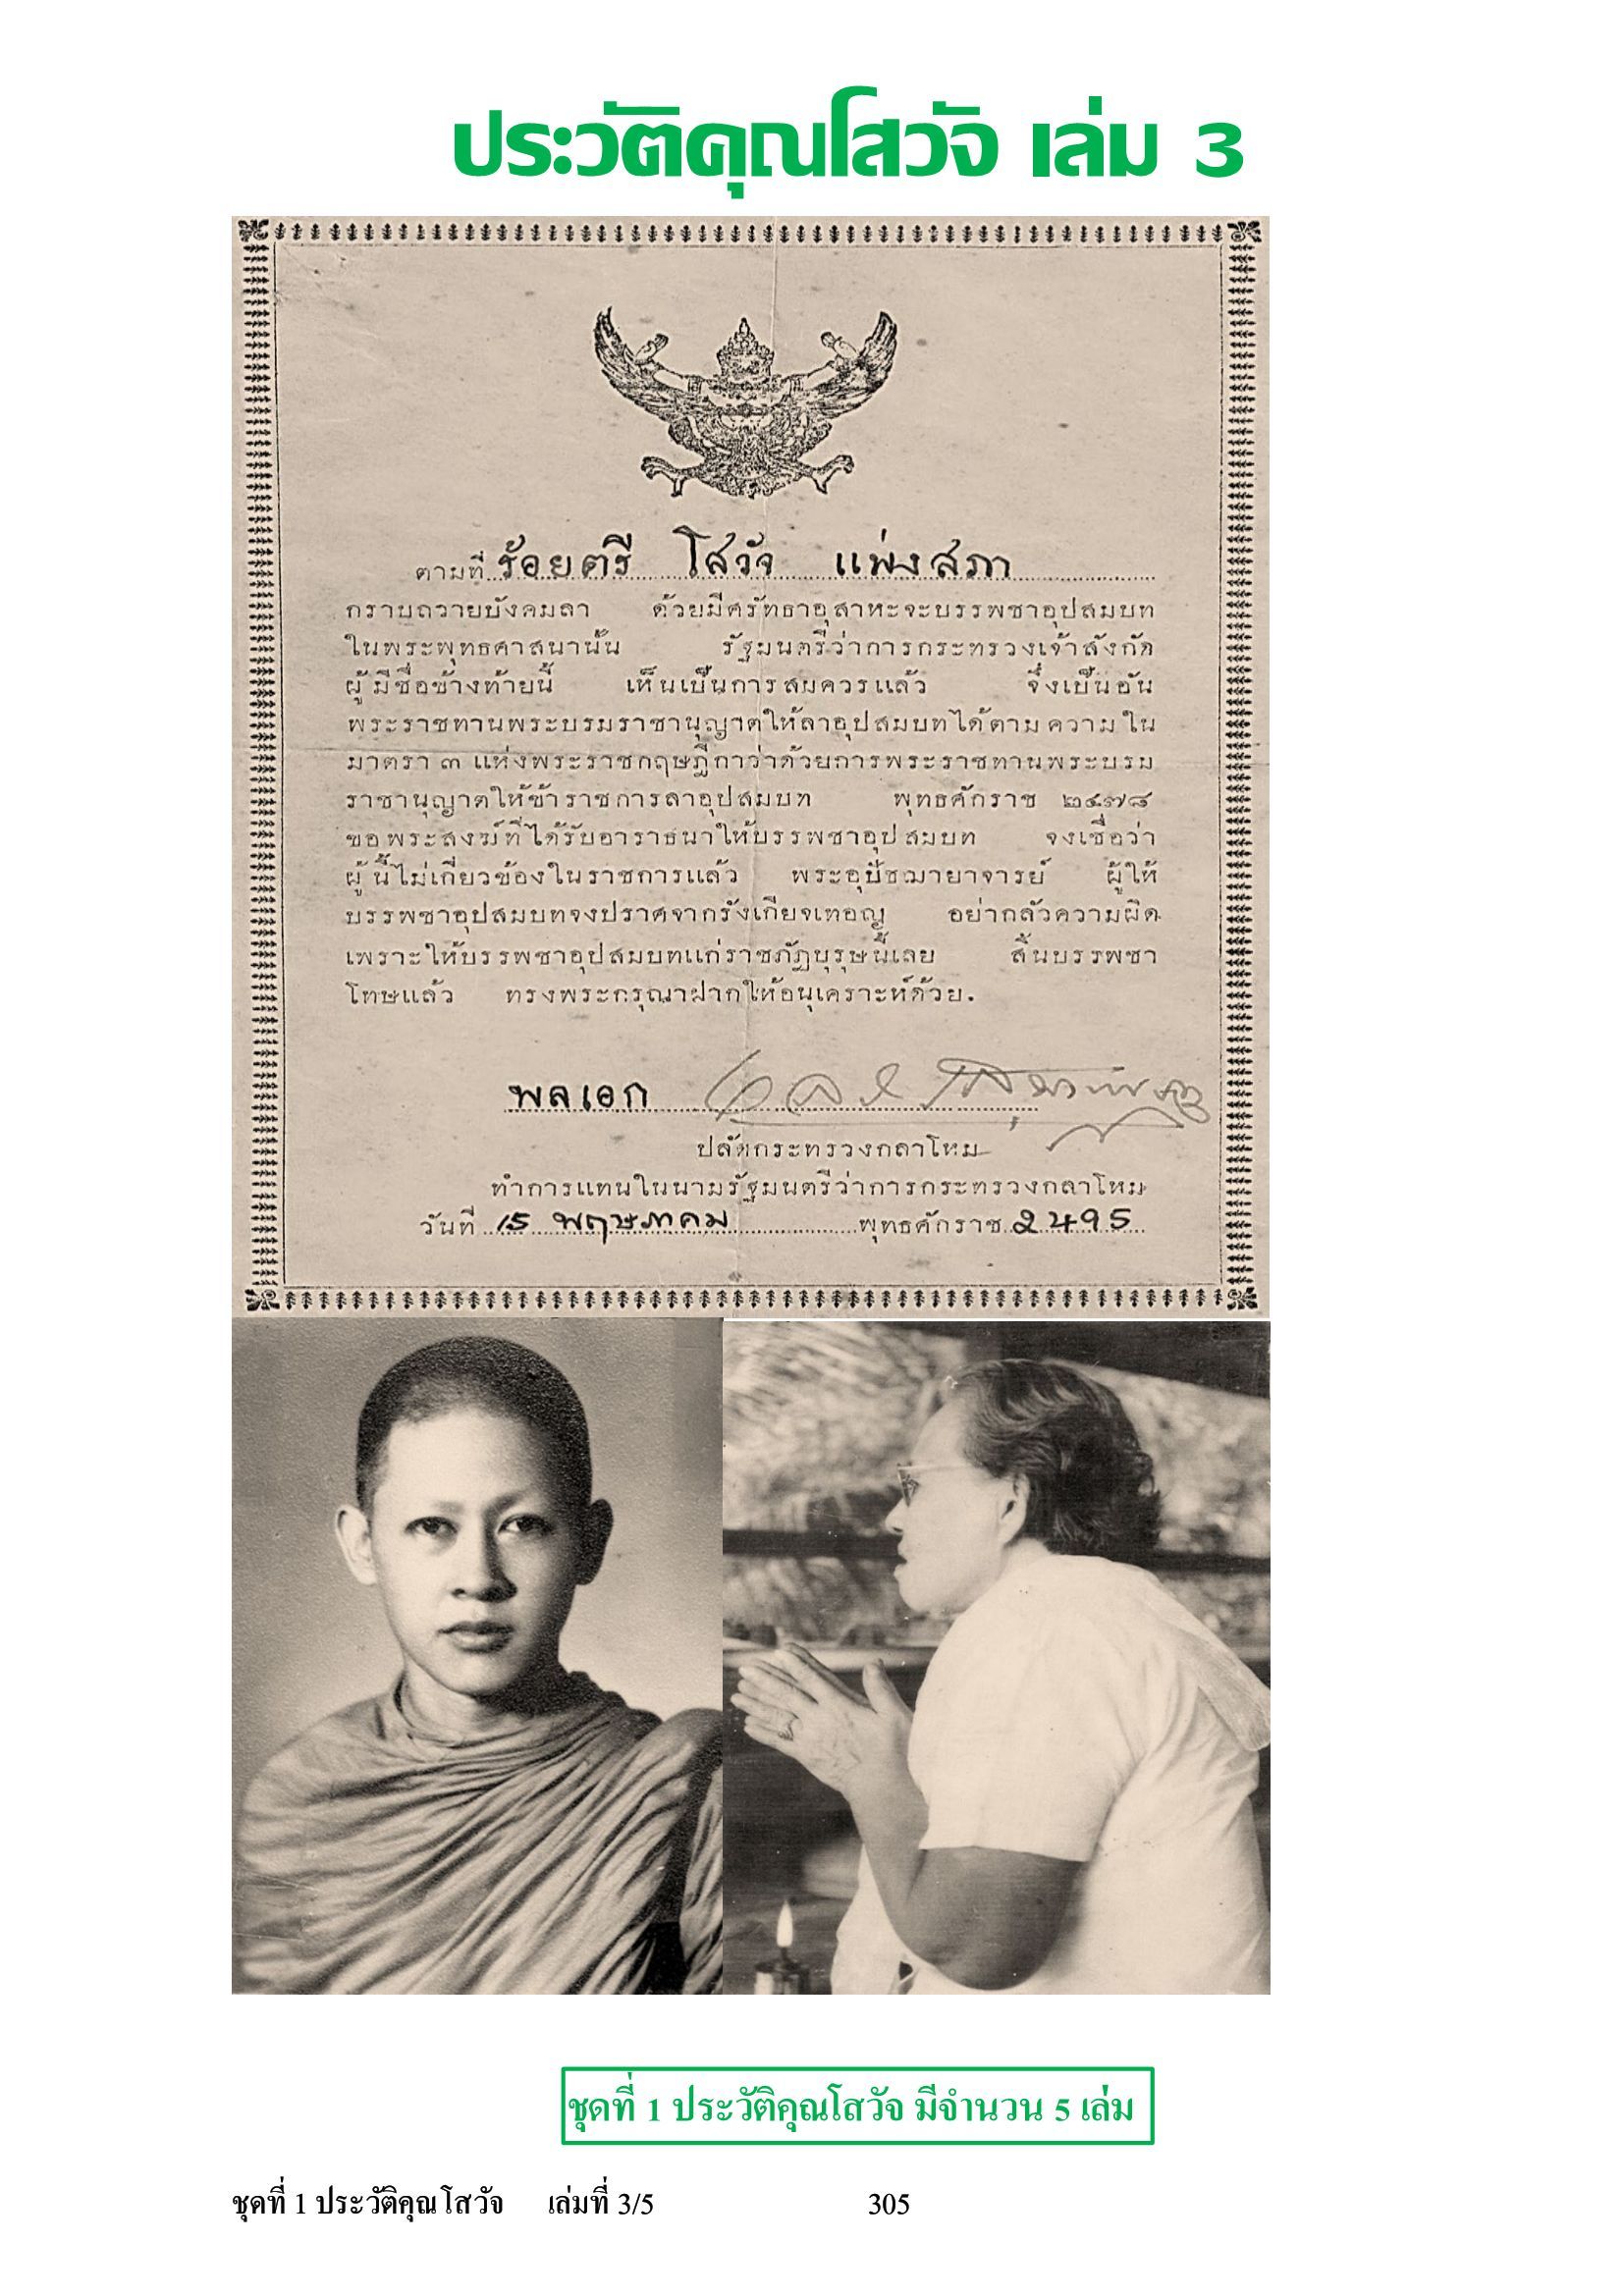 ประวัติคุณโสวัจ เล่ม 3
ตามที่ ร้อยตรี โสวัจ แพ่งสภา
กราบถวายบังคมลา ด้วยมีศรัทธาอุสาหะจะบรรพชาอุปสมบท
ในพระพุทธศาสนานั้น รัฐมนตรีว่าการกระทรวงเจ้าสังกัด
ผู้มีชื่อข้างท้ายนี้ เห็นเป็นการสมควรแล้ว จึ่งเป็นอัน
พระราชทานพระบรมราชานุญาตให้ลาอุปสมบทได้ตามความใน
มาตรา ๓ แห่งพระราชกฤษฎีกาว่าด้วยการพระราชทานพระบรม
ราชานุญาตให้ข้าราชการลาอุปสมบท พุทธศักราช ๒๔๗๘
ขอพระสงฆ์ที่ได้รับอาราธนาให้บรรพชาอุปสมบท จงเชื่อว่า
ผู้นี้ไม่เกี่ยวข้องในราชการแล้ว พระอุปัชฌายาจารย์ ผู้ให้
บรรพชาอุปสมบทจงปราศจากรังเกียจเทอญ อย่ากลัวความผิด
เพราะให้บรรพชาอุปสมบทแก่ราชภัฏบุรุษนี้เลย สิ้นบรรพชา
โทษแล้ว ทรงพระกรุณาฝากให้อนุเคราะห์ด้วย.
พลเอก
ปลัดกระทรวงกลาโหม
ทำการแทนในนามรัฐมนตรีว่าการกระทรวงกลาโหม
วันที่ 15 พฤษภาคม พุทธศักราช 2495
ชุดที่ 1 ประวัติคุณโสวัจ มีจำนวน 5 เล่ม
ชุดที่ 1 ประวัติคุณโสวัจ เล่มที่ 3/5 305